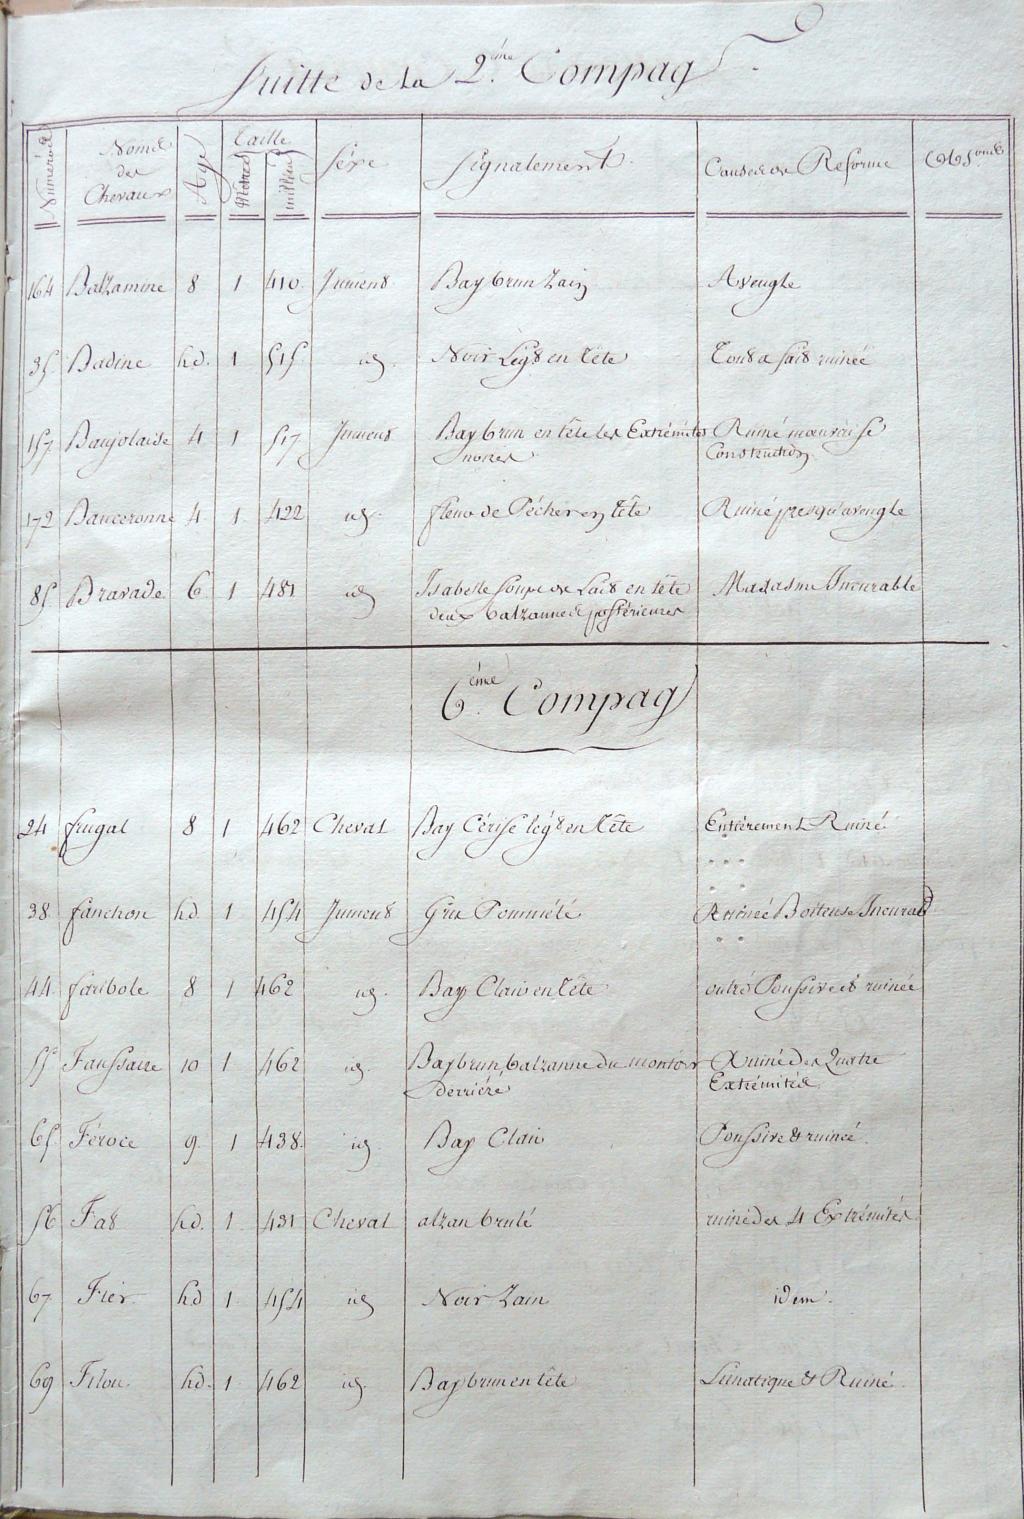 Suitte de la 2.ème Compag
Numéros Noms des Chevaux Age Taille Mètres millim Sexe Signalement Causes de Reforme Obs.ons
164 Balzamine 8 1 410 Jument Bay brun Zain Aveugle
35 Badine hd. 1 515 id. Noir Lég.t en tête Tout a fait ruinée
157 Baujolaise 4 1 517 Jument Bay brun en tête les Extrémités Ruiné mauvaise
noires Construction
172 Bauceronne 4 1 422 id. fleur de Pécher en tête Ruiné presqu'aveugle
85 Bravade 6 1 481 id Isabelle soupe de Lait en tête Incurable
deux balzannes postérieures
6.ème Compag
24 frugal 8 1 462 Cheval Bay Cérise lég.t en tête Entièrement Ruiné
38 fanchon hd. 1 454 Jument Gris Pommélé Ruinée Boiteuse Incurab
44 faribole 8 1 462 id. Bay Clair en tête outré Poussive et ruinée
55 Faussaire 10 1 462 id. Bay brun, balzanne du montoir Ruiné des Quatre
Derrière Extrémités
65 Féroce 9 1 438 id Bay Clair Poussive & ruinée
56 Fat hd. 1 431 Cheval alzan brulé ruiné des 4 Extrémités
67 Fier hd 1 454 id Noir Zain idem.
69 Filou hd. 1 462 id. Bay brun en tête Lunatique & Ruiné.